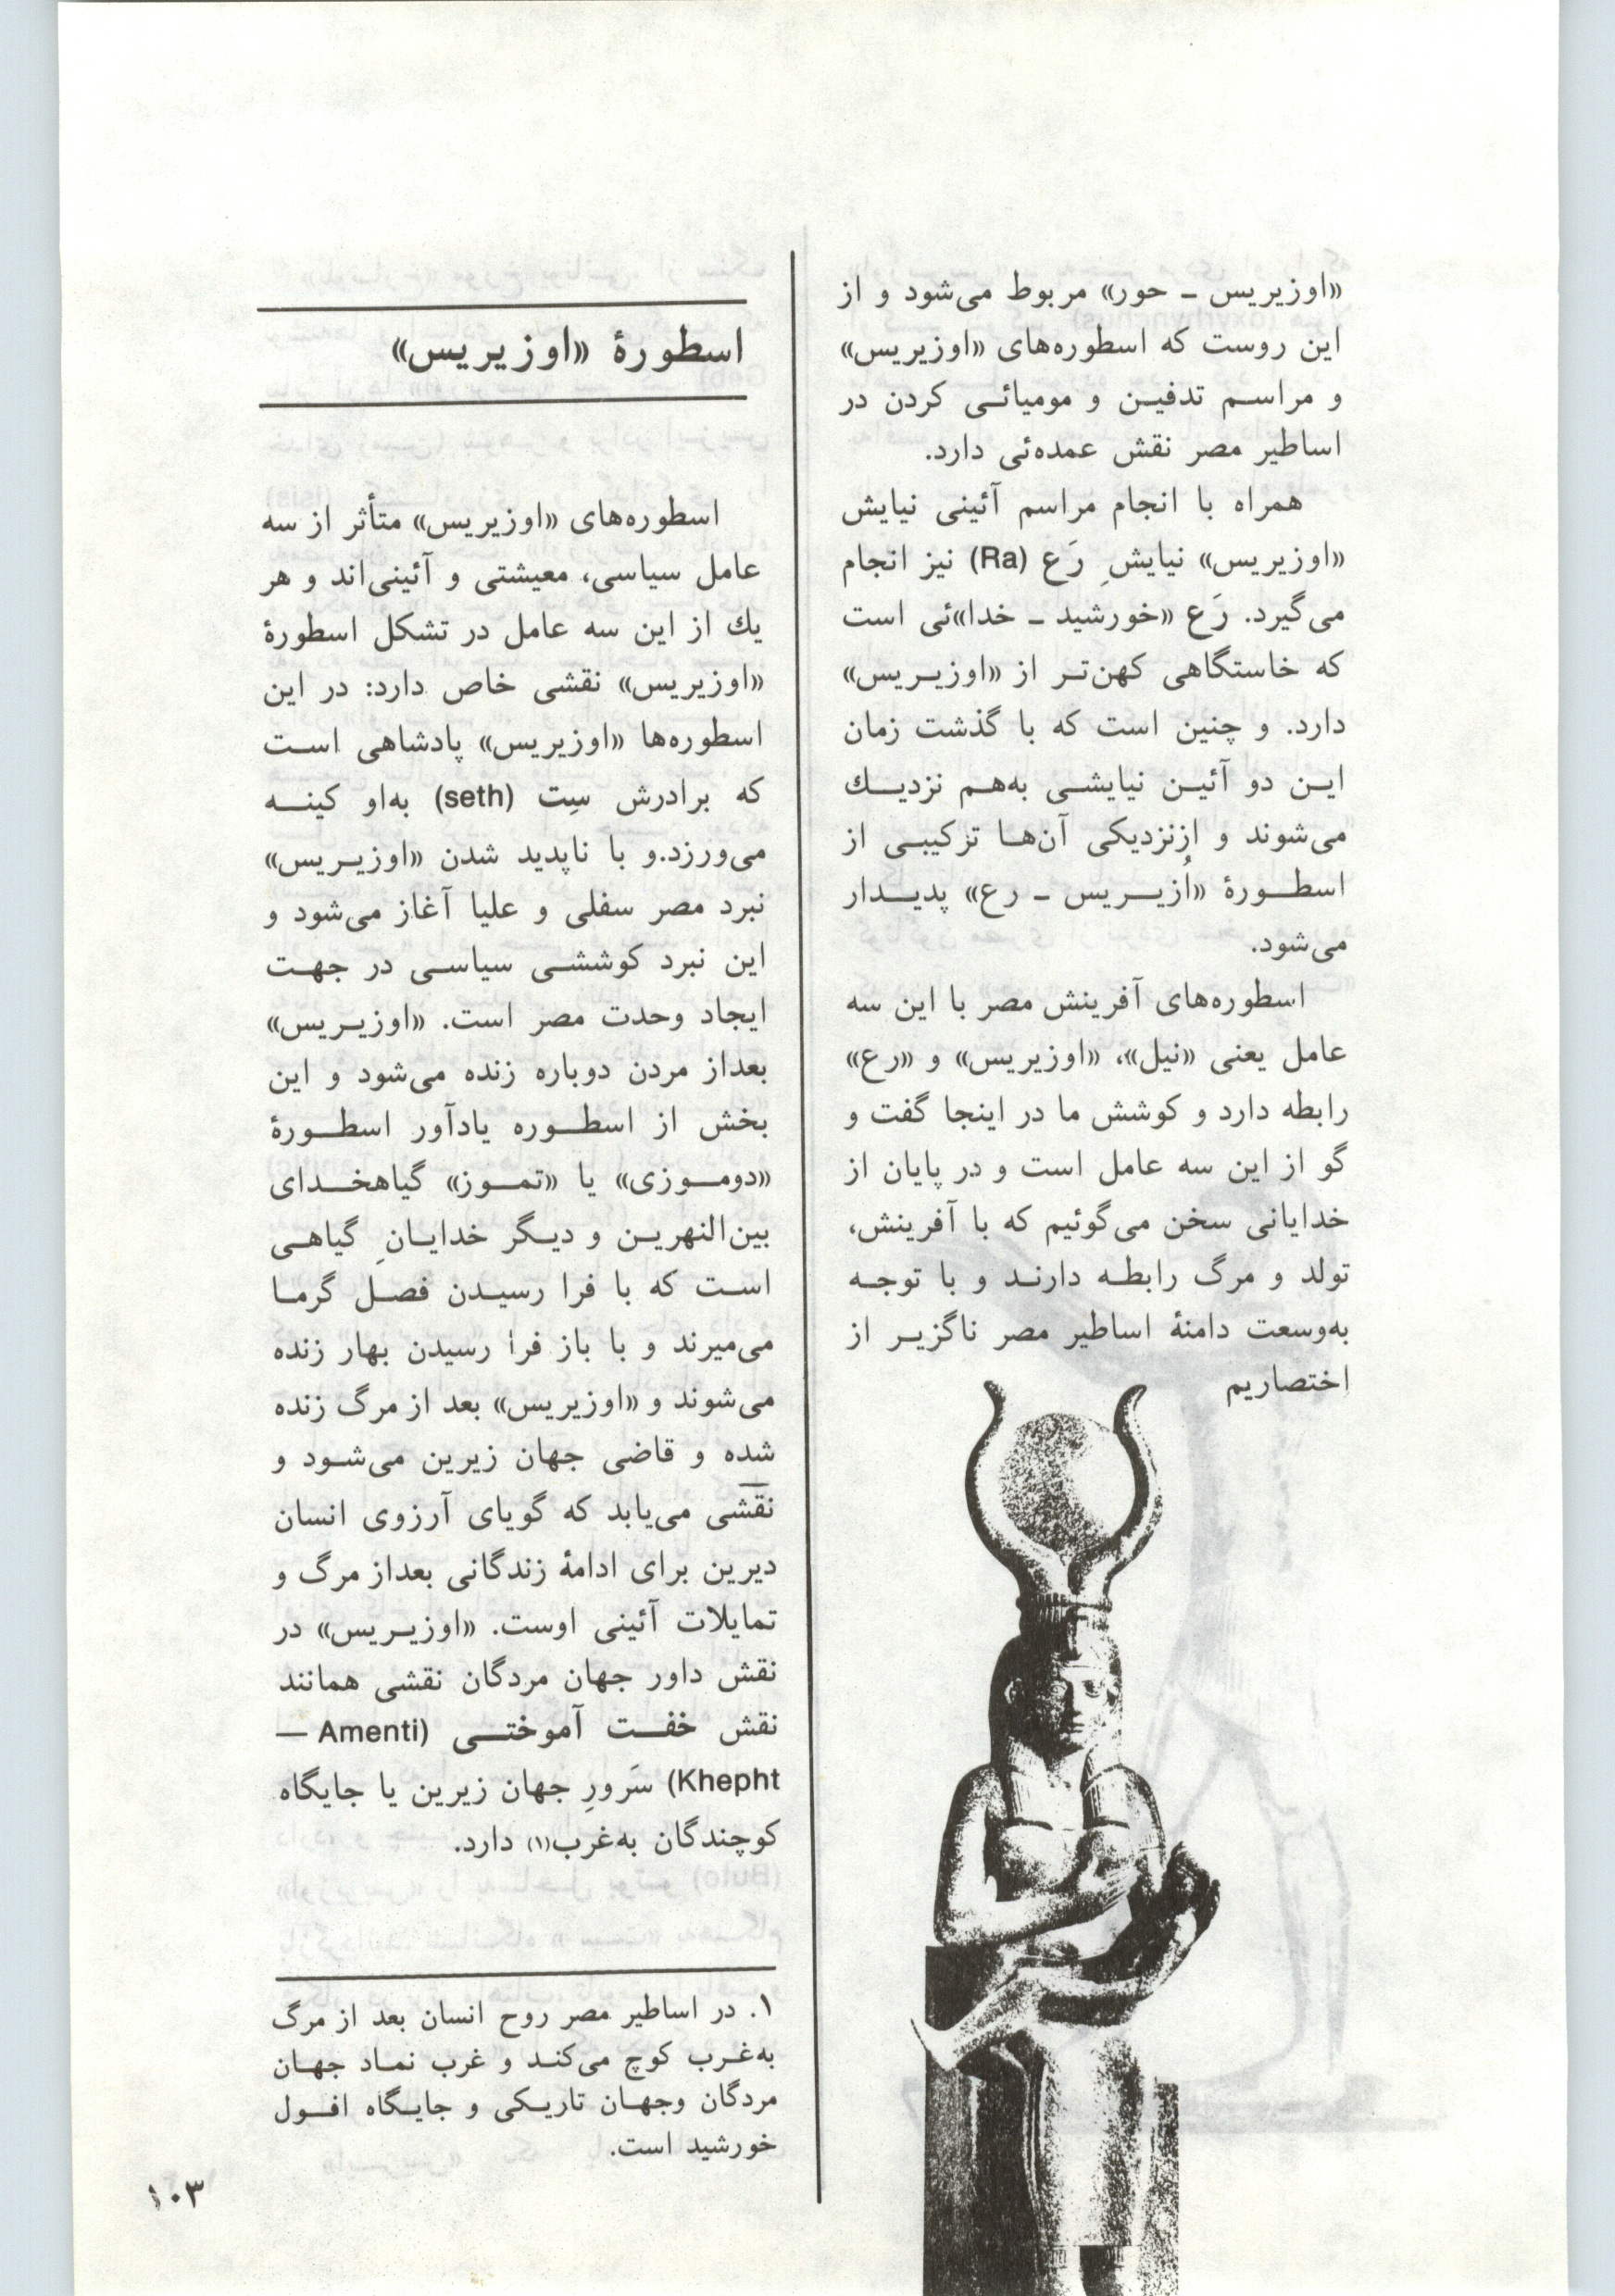 «اوزیریس ـ حور» مربوط می‌شود و از
این روست که اسطوره‌های «اوزیریس»
و مراسم تدفین و مومیائی کردن در
اساطیر مصر نقش عمده‌ئی دارد.
همراه با انجام مراسم آئینی نیایش
«اوزیریس» نیایشِ رَع (Ra) نیز انجام
می‌گیرد. رَع «خورشید ـ خدا»ئی است
که خاستگاهی کهن‌تر از «اوزیریس»
دارد. و چنین است که با گذشت زمان
این دو آئین نیایشی به‌هم نزدیك
می‌شوند و ازنزدیکی آن‌ها ترکیبی از
اسطورهٔ «اُزیریس ـ رع» پدیدار
می‌شود.
اسطوره‌های آفرینش مصر با این سه
عامل یعنی «نیل»، «اوزیریس» و «رع»
رابطه دارد و کوشش ما در اینجا گفت و
گو از این سه عامل است و در پایان از
خدایانی سخن می‌گوئیم که با آفرینش،
تولد و مرگ رابطه دارند و با توجه
به‌وسعت دامنهٔ اساطیر مصر ناگزیر از
اختصاریم
اسطورهٔ «اوزیریس»
اسطوره‌های «اوزیریس» متأثر از سه
عامل سیاسی، معیشتی و آئینی‌اند و هر
یك از این سه عامل در تشکل اسطورهٔ
«اوزیریس» نقشی خاص دارد: در این
اسطوره‌ها «اوزیریس» پادشاهی است
که برادرش سِت (seth) به‌او کینه
می‌ورزد.و با ناپدید شدن «اوزیریس»
نبرد مصر سفلی و علیا آغاز می‌شود و
این نبرد کوششی سیاسی در جهت
ایجاد وحدت مصر است. «اوزیریس»
بعداز مردن دوباره زنده می‌شود و این
بخش از اسطوره یادآور اسطورهٔ
«دوموزی» یا «تموز» گیاهخدای
بین‌النهرین و دیگر خدایانِ گیاهی
است که با فرا رسیدن فصل گرما
می‌میرند و با باز فرا رسیدن بهار زنده
می‌شوند و «اوزیریس» بعد از مرگ زنده
شده و قاضی جهان زیرین می‌شود و
نقشی می‌یابد که گویای آرزوی انسان
دیرین برای ادامهٔ زندگانی بعداز مرگ و
تمایلات آئینی اوست. «اوزیریس» در
نقش داور جهان مردگان نقشی همانند
نقش خفت آموختی (Amenti —
Khepht) سَرورِ جهان زیرین یا جایگاه
کوچندگان به‌غرب(۱) دارد.
۱. در اساطیر مصر روح انسان بعد از مرگ
به‌غرب کوچ می‌کند و غرب نماد جهان
مردگان وجهان تاریکی و جایگاه افول
خورشید است.
۱۰۳